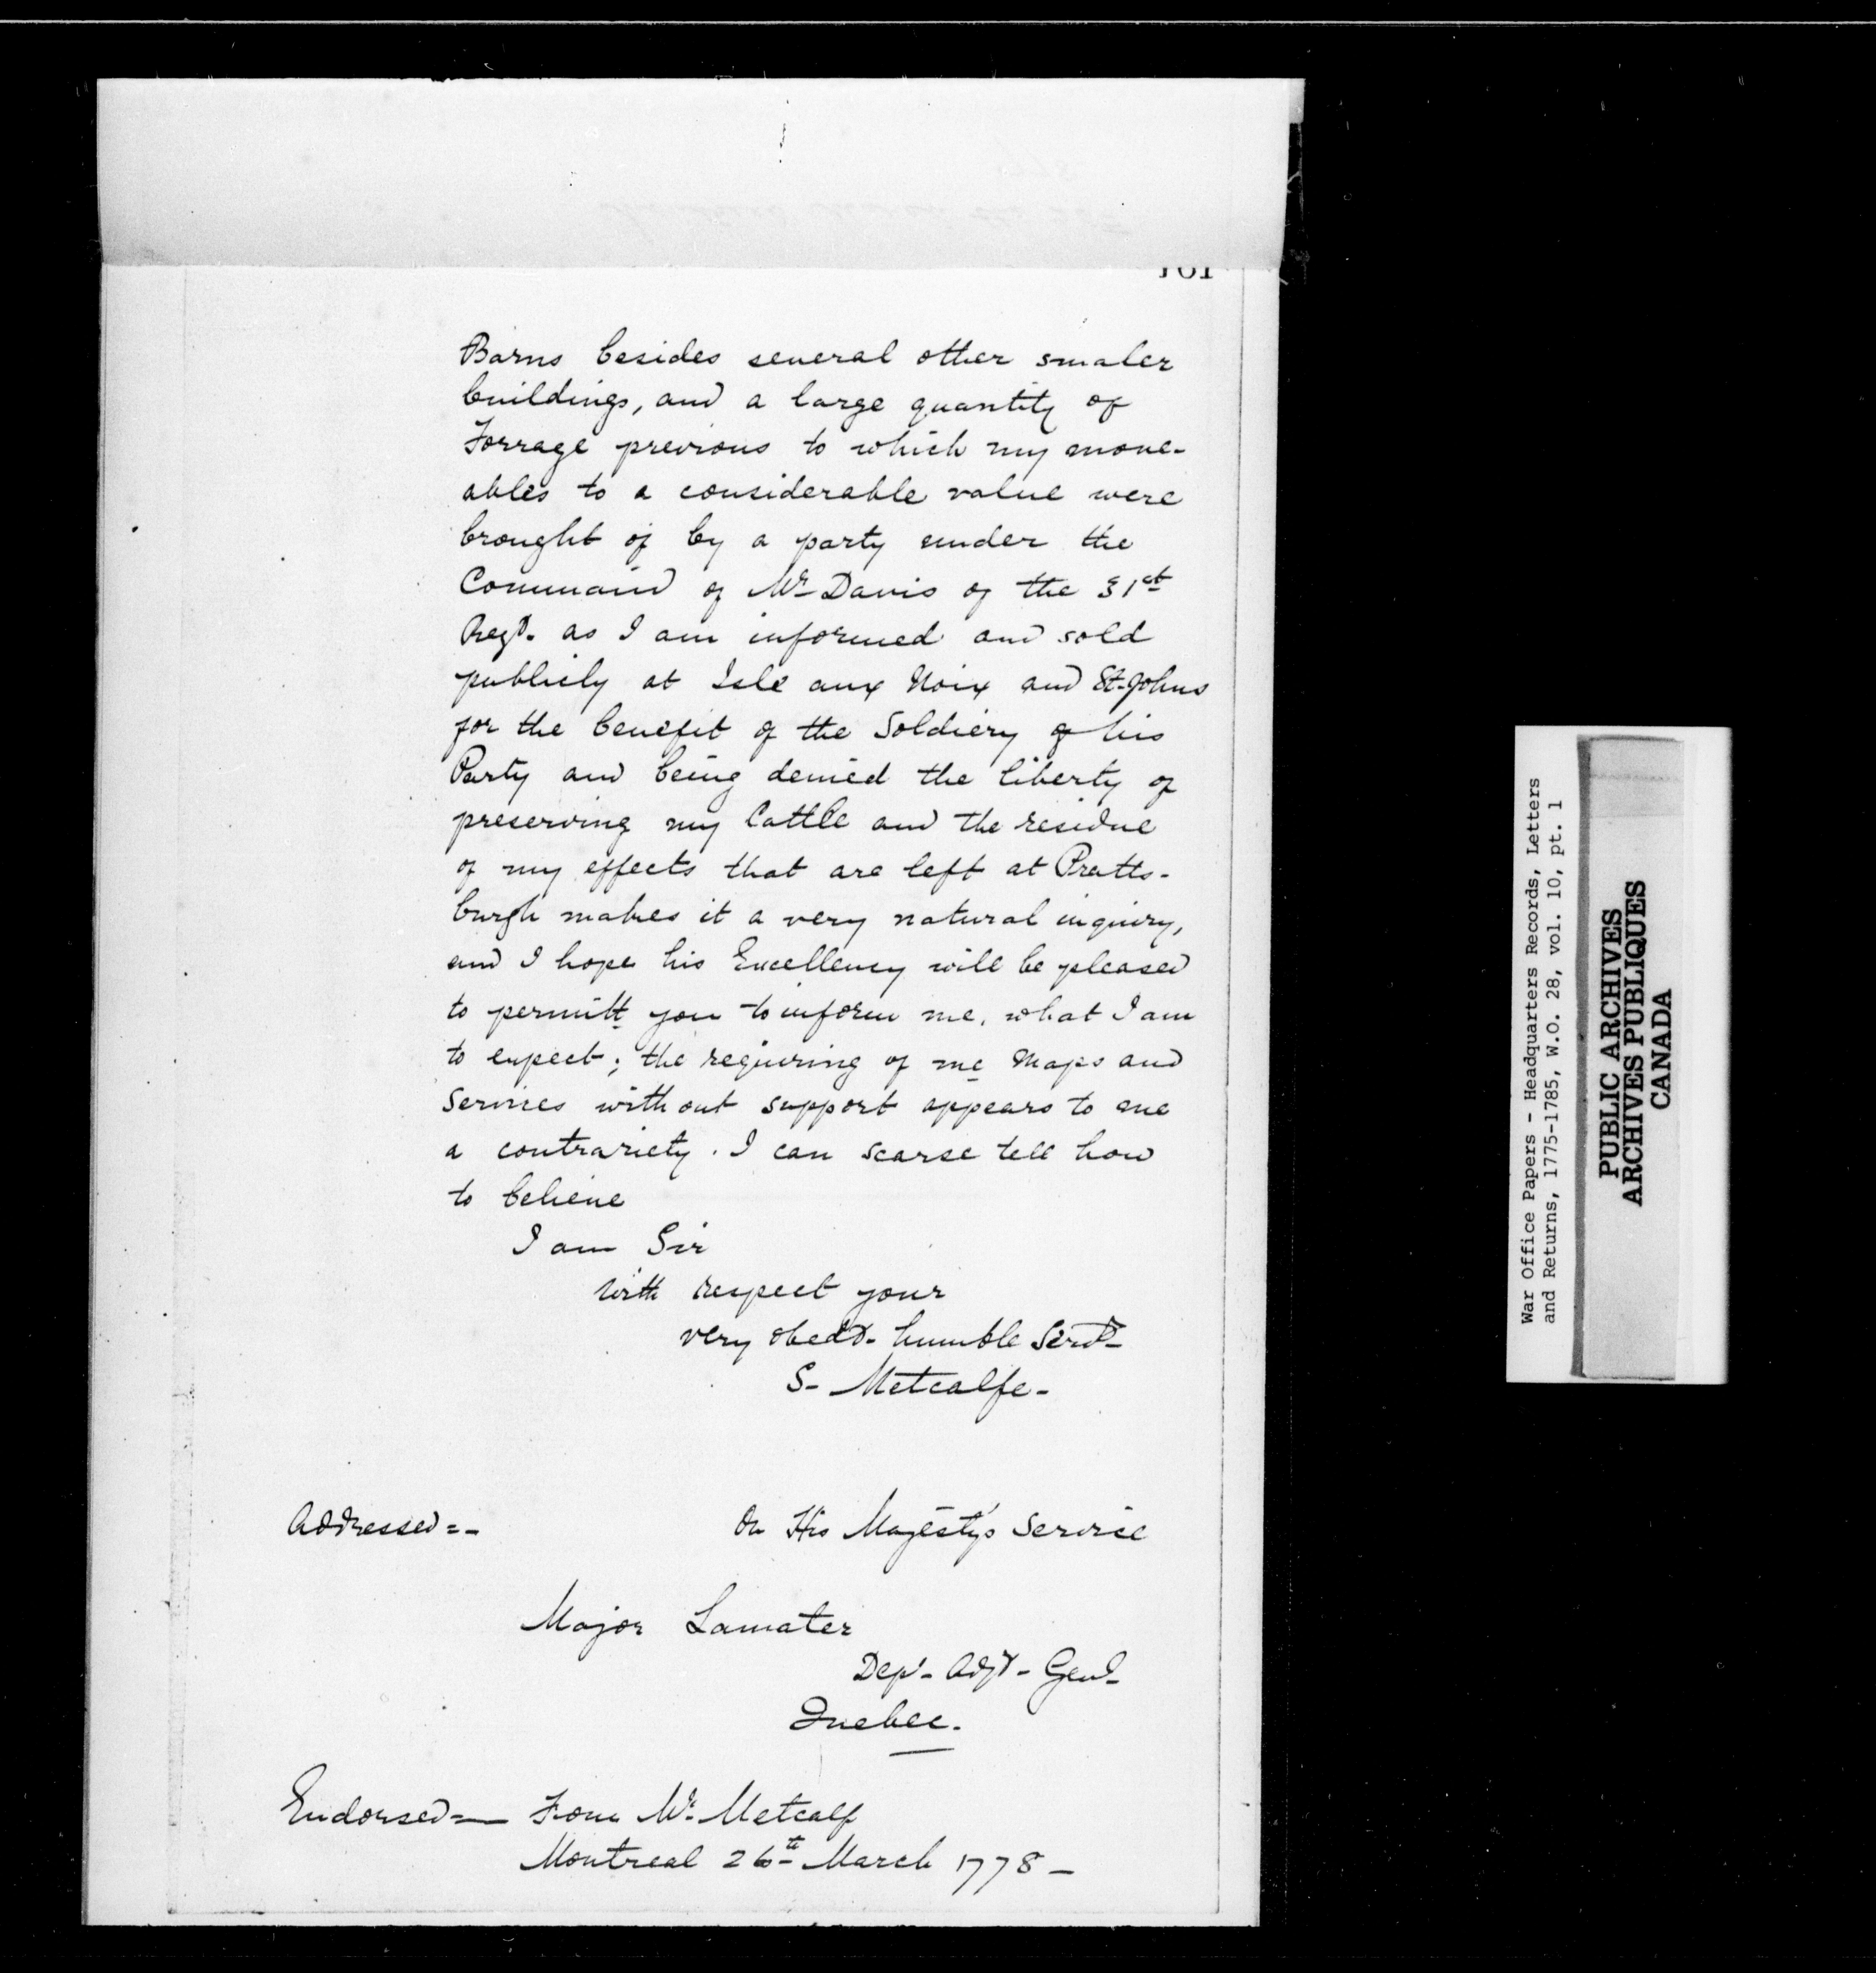 101
Barns besides several other smaler
buildings, and a large quantity of
Forrage previous to which my move-
ables to a considerable value were
brought of by a party under the
Command of Mr Davis of the 31st
Regt. as I am informed and sold
publicly at Isle aux Noix and St-Johns
for the benefit of the Soldiery of his
Party and being denied the liberty of
preserving my Cattle and the residue
of my effects that are left at Pratts-
burgh makes it a very natural inquiry,
and I hope his Excellency will be pleased
to permitt you to inform me, what I am
to expect; the requiring of me Maps and
Services without support appears to me
a contrariety. I can scarse tell how
to believe
I am Sir
with respect your
very obedt- humble Servt-
S- Metcalfe-
Addressed=-
On His Majesty's Service
Major Lamater
Dep'- Adjt- Genl-
Quebec.
Endorsed=— From Mr Metcalf
Montreal 26th March 1778-
War Office Papers - Headquarters Records, Letters
and Returns, 1775-1785, W.O. 28, vol. 10, pt. 1
PUBLIC ARCHIVES
ARCHIVES PUBLIQUES
CANADA